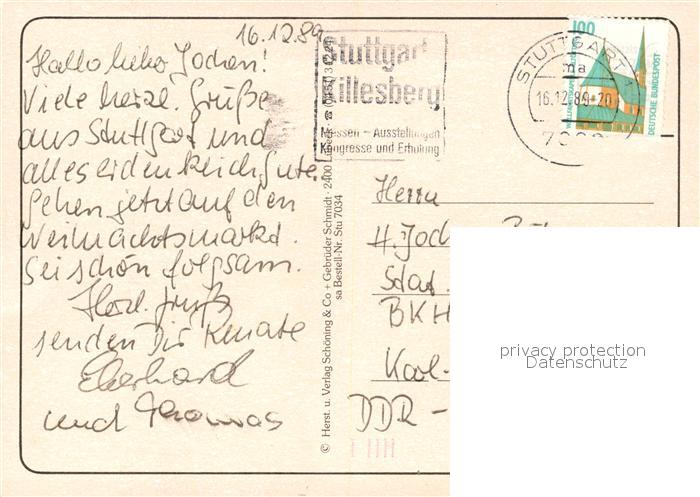 16.12.89
Hallo lieber Jochen!
Viele herzl. Grüße
aus Stuttgart und
alles erdenklich gute.
Gehen jetzt auf den
Weihnachtsmarkt.
Sei schön folgsam.
Herzl. Grüße
senden Dir Renate
Eberhard
und Thomas
© Herst. u. Verlag Schöning & Co + Gebrüder Schmidt · 2400 Lübeck
sa Bestell-Nr. Stu 7034
Stuttgart
Killesberg
Messen - Ausstellungen
Kongresse und Erholung
STUTTGART 1
ma
16.12.89-20
100
DEUTSCHE BUNDESPOST
Herrn
H. Joch
Stat.
BKH
Karl-
DDR -
privacy protection
Datenschutz